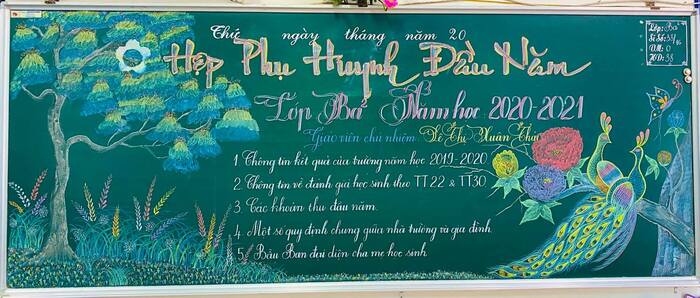 Thứ ngày tháng năm 20
Họp Phụ Huynh Đầu Năm
Lớp Ba² Năm học 2020-2021
Giáo viên chủ nhiệm: Lê Thị Xuân Thảo
1. Thông tin kết quả của trường năm học 2019-2020.
2. Thông tin về đánh giá học sinh theo TT22 & TT30
3. Các khoản thu đầu năm.
4. Một số quy định chung giữa nhà trường và gia đình.
5. Bầu Ban đại diện cha mẹ học sinh.
Lớp: Ba²
Sĩ Số: 38/16
V.M: 0
H.D: 38